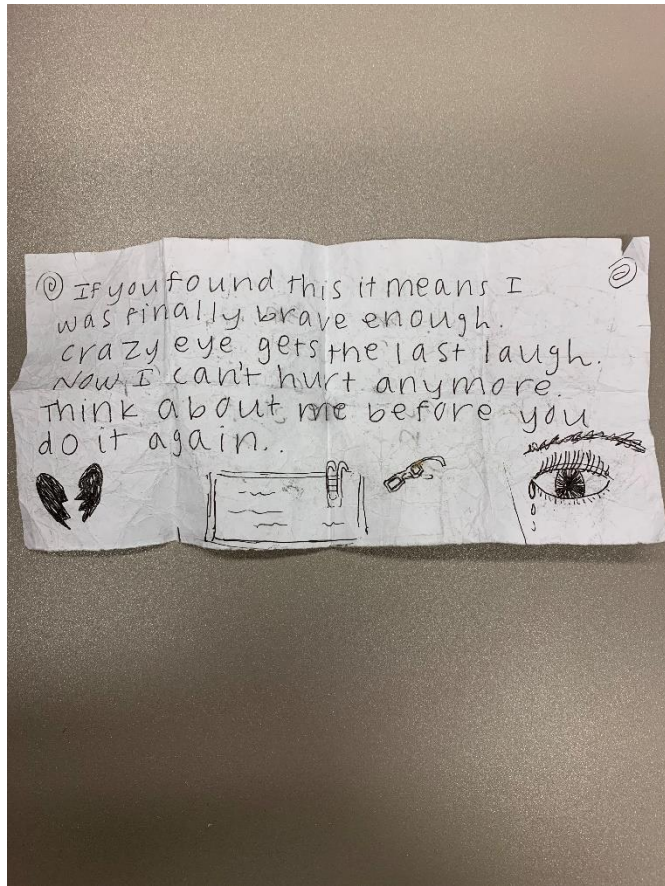 If you found this it means I
was finally brave enough.
crazy eye gets the last laugh.
Now I can't hurt anymore.
Think about me before you
do it again..